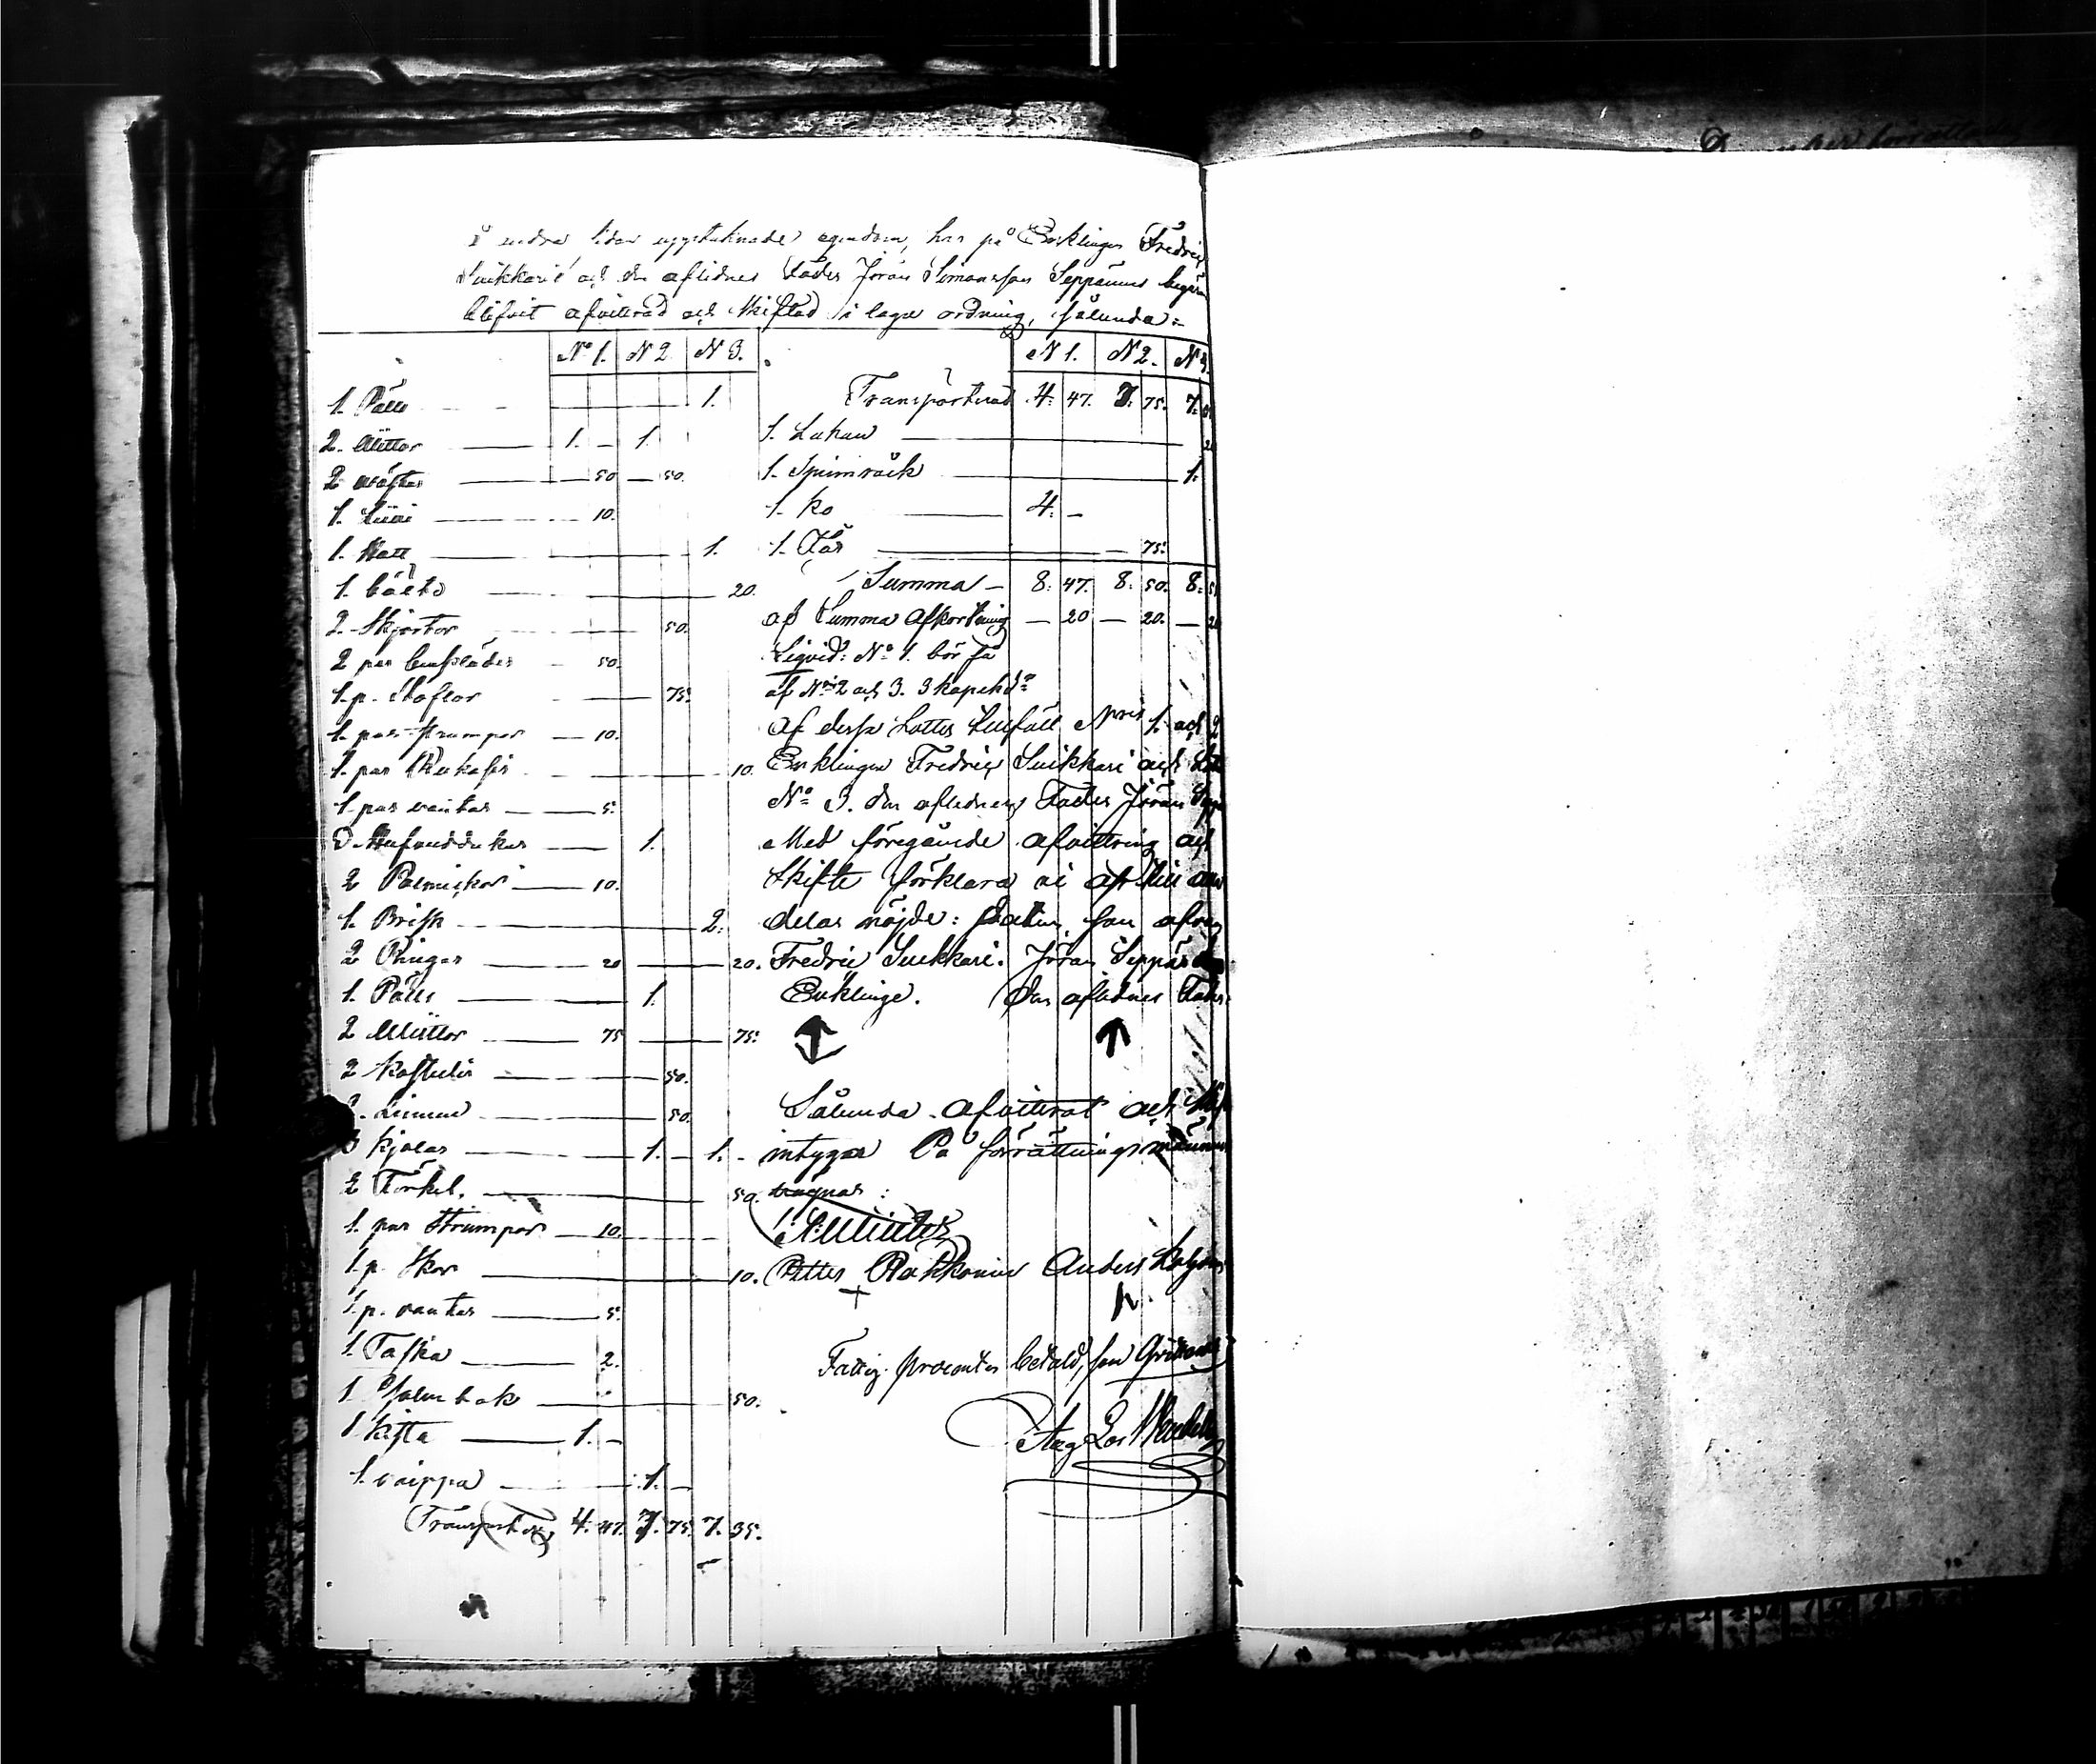 å andra sidan upptecknade egendom, har på Enklingen Fredric
Suikkarie och den aflidnes Fader Jöran Simonsson Seppänens begäran
blifvit afvittrad och skiftad i laga ordning, sålunda:
No 1. N 2 N 3.
1. Päls 1.
2. Müttor 1. - 1.
2. Wästar - 50 - 50.
1. Liivi 10.
1. Hatt 1.
1. bälte 20.
2. Skjortor 50.
2 par benkläder - 50.
1. p. Stöflor 75.
1. par strumpor - 10.
1. par Rukasir 10.
1. par vantar 5.
Hufvuddukar 1.
2 Palmickor 10.
1. Brisk 2.
2 Ringar 20 20.
1. Päls 1.
2 Müttor 75 75.
2 Kostulir 50.
Linnen 50.
3 Kjolar 1. - 1. -
2 Förkel. 50.
1. par Strumpor 10.
1. p. Skor 10.
1. p. vantar 5.
1. Taska 2.
1. Psalmbok 50.
1 Kista 1. -
1. vaippa 1. -
Transport 4. 47. 7. 75. 7. 35.
N 1. N 2. N 3.
Transporterad 4. 47. 7. 75. 7.
1. Lakan
1. Spinnråck 1.
1. Ko 4. -
1. Får 75.
Summa - 8. 47. 8. 50. 8.
af Summa Afkortning - 20 - 20. -
Liqvid: No 1. bör få
af No 2 och 3. 3 kopek
Af dessa Lotter tillföll Nris 1. och 2
Enklingen Fredric Suikkari och
No 3. den aflidnes Fader Jöran
Med föregående afvittring och
skifte förklara vi oss till alla
delar nöjde: Datum, som ofvan
Fredric Suikkari. Jöran Seppänen
Enklinge. Den aflidnes Fader
Sålunda afvittrat och
intygar På förrättningsmännens
vägnar:
Petter Rakkonin Anders
Fattig procenten betald, som qvitteras